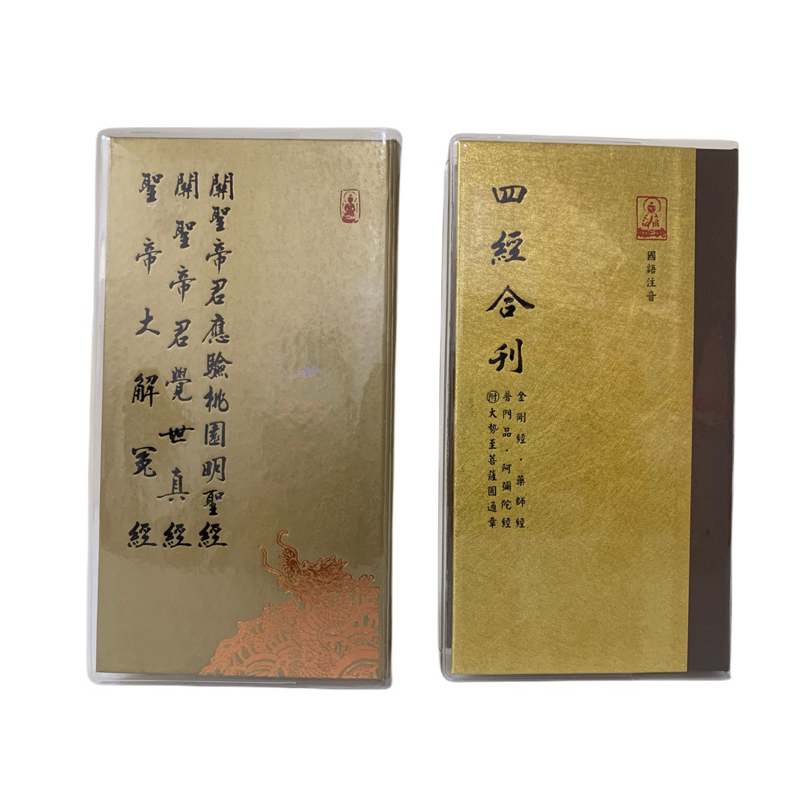 關聖帝君應驗桃園明聖經
關聖帝君覺世真經
聖帝大解冤經
四經合刊
國語注音
金剛經·藥師經
普門品·阿彌陀經
附大勢至菩薩圓通章